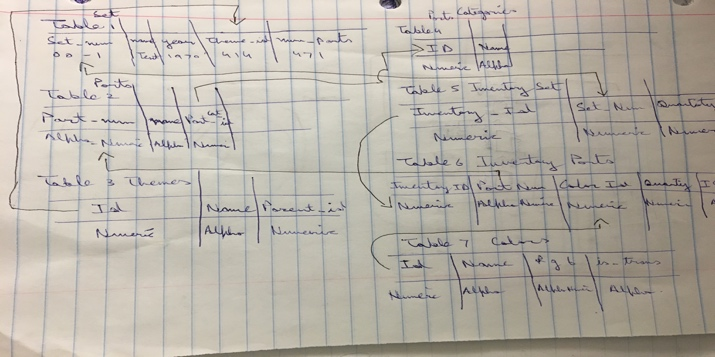 Set
Table 1
Set_num name year Theme_id num_parts
00-1 Text 1970 414 471
Parts
Table 2
Part_num name Part cat_id
Alpha_Numeric Alpha Numeri
Table 3 Themes
Id Name Parent_id
Numeric Alpha Numeric
Parts Categories
Table 4
ID Name
Numeric Alpha
Table 5 Inventory Set
Inventory_Id Set_Num Quantate
Numeric Numeric Numeri
Table 6 Inventory Parts
Inventory ID Part Num Color Id Quantity I
Numeric Alpha Numeric Numeric Numeri
Table 7 Colors
Id Name rgb is_trans
Numeric Alpha Alpha